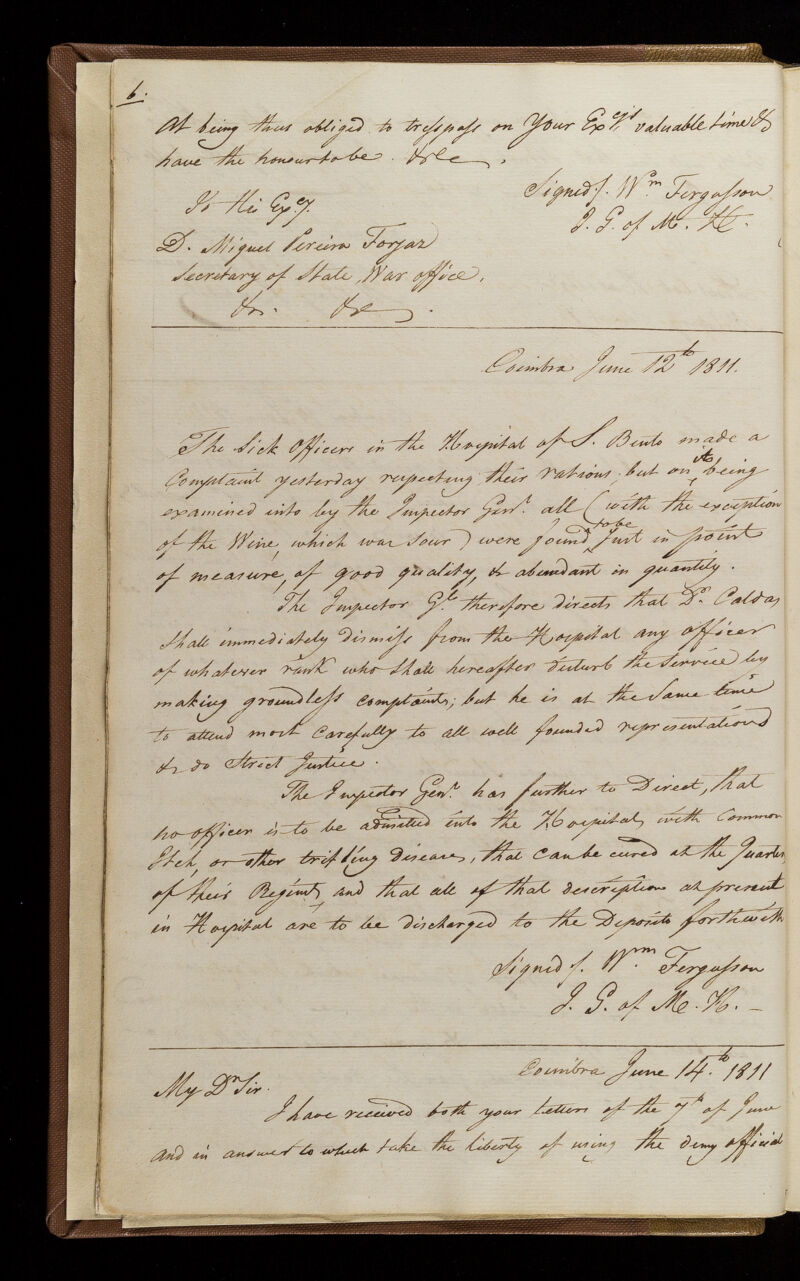 6.
At being thus obliged to tresspass on Your Excy's valuable time &
have the honour to be &c &c.
Signed/. Wm. Fergusson
I. G. of M. H.
To His Excy.
D. Miguel Pereira Forjaz
Secretary of State, War office,
&c. &c.
Coimbra June 12th 1811.
The Sick Officers in the Hospital of S. Bento made a
Complaint yesterday respecting their rations; but on it being
examined into by the Inspector Genl. all (with the exception
of the Wine, which was sour) were found to be just in point
of measure, of good quality, & abundant in quantity.
The Inspector Gl. therefore directs that Dr. Caldas
shall immediately dismiss from the Hospital any officer
of whatever rank who shall hereafter disturb the service by
making groundless complaints; but he is at the same time
to attend most carefully to all well founded representations
& do Strict Justice.
The Inspector Genl. has further to Direct, that
no officer is to be admitted into the Hospital, with Common
Itch, or other trifling diseases, that can be cured at the Quarters
of their Regimts, and that all of that description at present
in Hospital are to be discharged to the Deposits forthwith
Signed/. Wm. Fergusson
I. G. of M. H. —
Coimbra June 14th. 1811
My Dr Sir.
I have received both your letters of the 7th of June
and in answer to which take the liberty of using the demy official